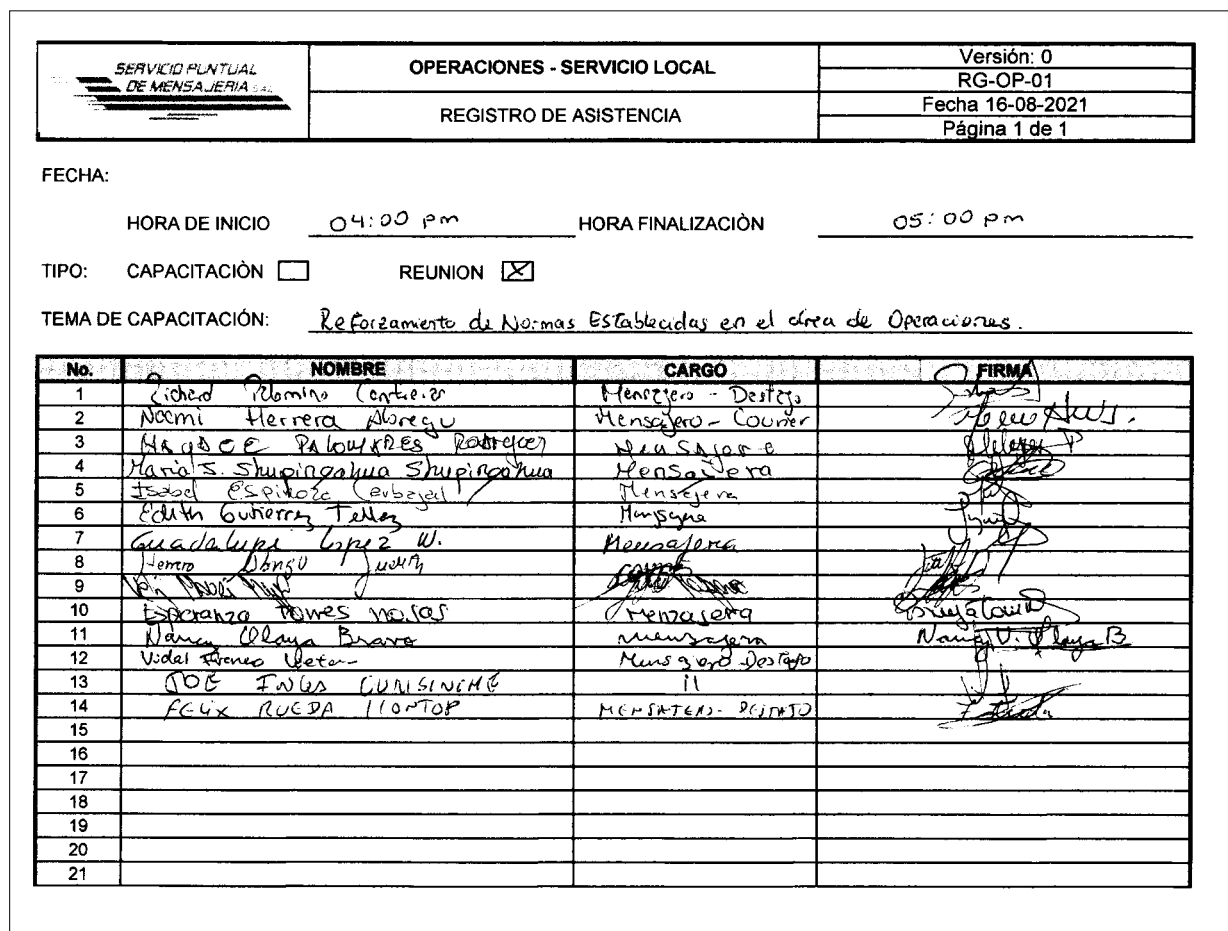 SERVICIO PUNTUAL
DE MENSAJERIA S.A.C.
OPERACIONES - SERVICIO LOCAL
REGISTRO DE ASISTENCIA
Versión: 0
RG-OP-01
Fecha 16-08-2021
Página 1 de 1
FECHA:
HORA DE INICIO 04:00 pm HORA FINALIZACIÒN 05:00 pm
TIPO: CAPACITACIÒN REUNION X
TEMA DE CAPACITACIÓN: Reforzamiento de Normas Establecidas en el área de Operaciones.
No. NOMBRE CARGO FIRMA
1 Richard Palomino Mensajero - Destajo
2 Noemi Herrera Abregu Mensajero - Courier
3 PALOMARES
4 Maria S. Shupingahua Shupingahua Mensajera
5 Isabel Espinoza Carbajal Mensajera
6 Edith Gutierrez Tellez Mensajera
7 Guadalupe Lopez W. Mensajera
8 Judith
9
10 Esperanza Menzajera
11 Nancy Olaya Bravo menzajera Nancy V. Olaya B
12 Vidal Mensajero Destajo
13 JOE INGA CURISINCHE 11
14 FELIX RUEDA LLONTOP MENSAJERO - DESTAJO
15
16
17
18
19
20
21